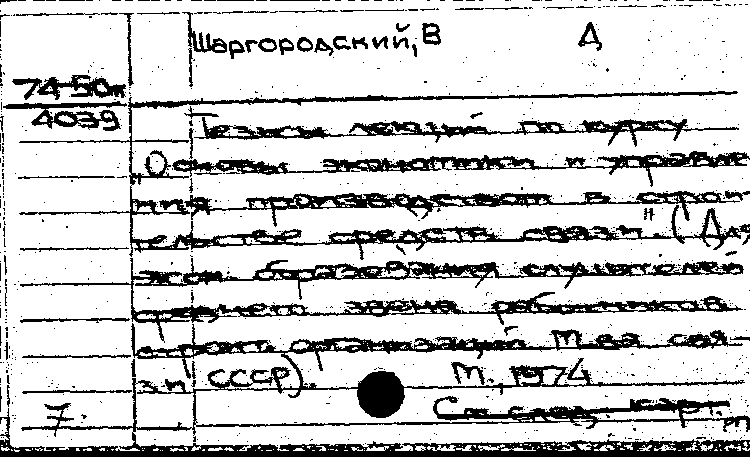 Шаргородский, В Д
74-50к
4039
Тезисы лекций по курсу
„Основы экономики и управле
ния производством в строи
тельстве средств связи". (Для
экон. образования слушателей
среднего звена работников
строит. организаций М-ва свя-
зи СССР). М., 1974.
7. См. след. карт.